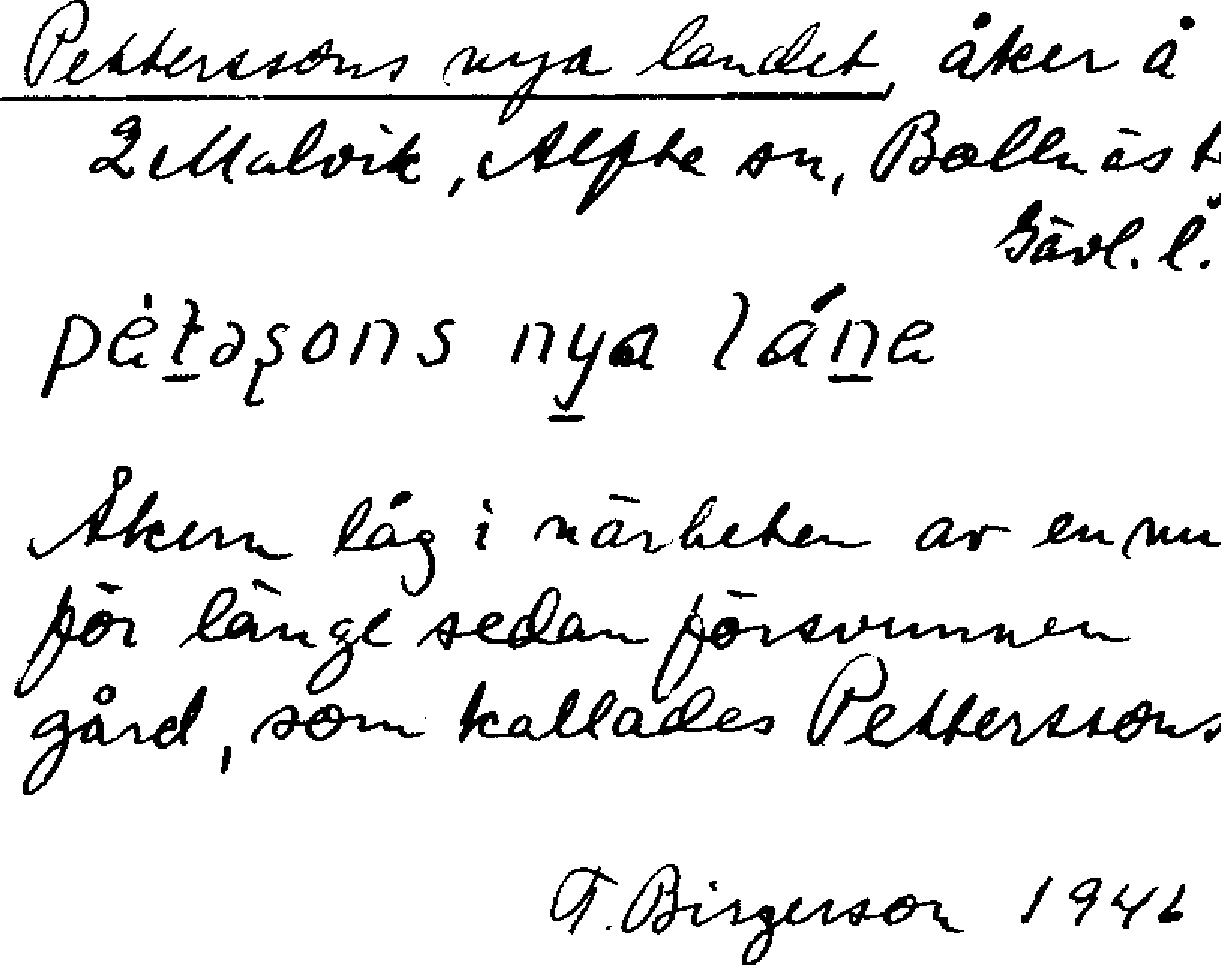 Petterssons nya landet, åker å
2 Malvik, Alfta sn, Bollnäs t
Gävl. l.
pètəʂons nya láṉa
Åkern låg i närheten av en nu
för länge sedan försvunnen
gård, som kallades Petterssons
F. Birgerson 1946